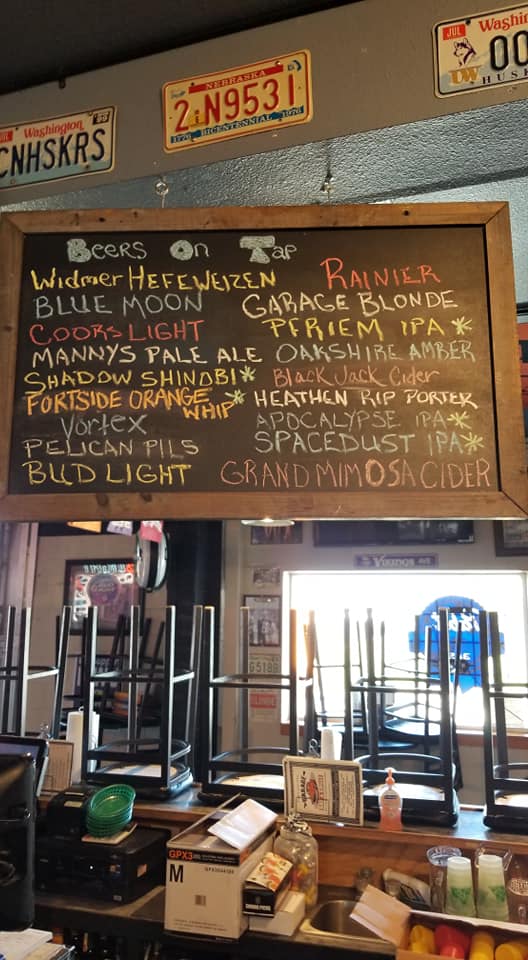 JUL
Washi
00
UW HUSK
NEBRASKA
2-N9531
1776 BICENTENNIAL 1976
Washington
CNHSKRS
BEERS ON TAP
WIDMER HEFEWEIZEN
BLUE MOON
COORS LIGHT
MANNYS PALE ALE
SHADOW SHINOBI*
FORTSIDE ORANGE WHIP*
VORTEX
PELICAN PILS
BUD LIGHT
RAINIER
GARAGE BLONDE
PFRIEM IPA *
OAKSHIRE AMBER
Black Jack Cider
HEATHEN RIP PORTER
APOCALYPSE IPA*
SPACEDUST IPA*
GRAND MIMOSA CIDER
VIKINGS AVE
G5189
GPX3
M